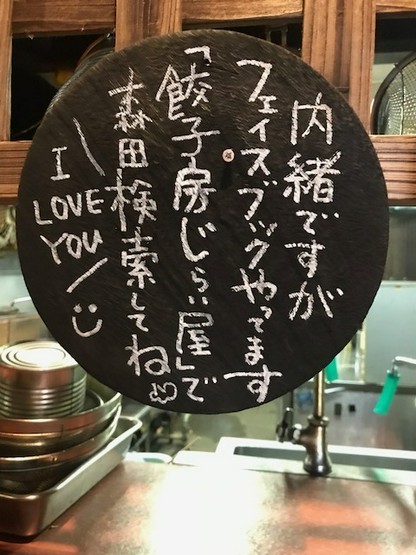 内緒ですが
フェイスブックやってます
「餃子房じらい屋」で
森田検索してね
I
LOVE
YOU